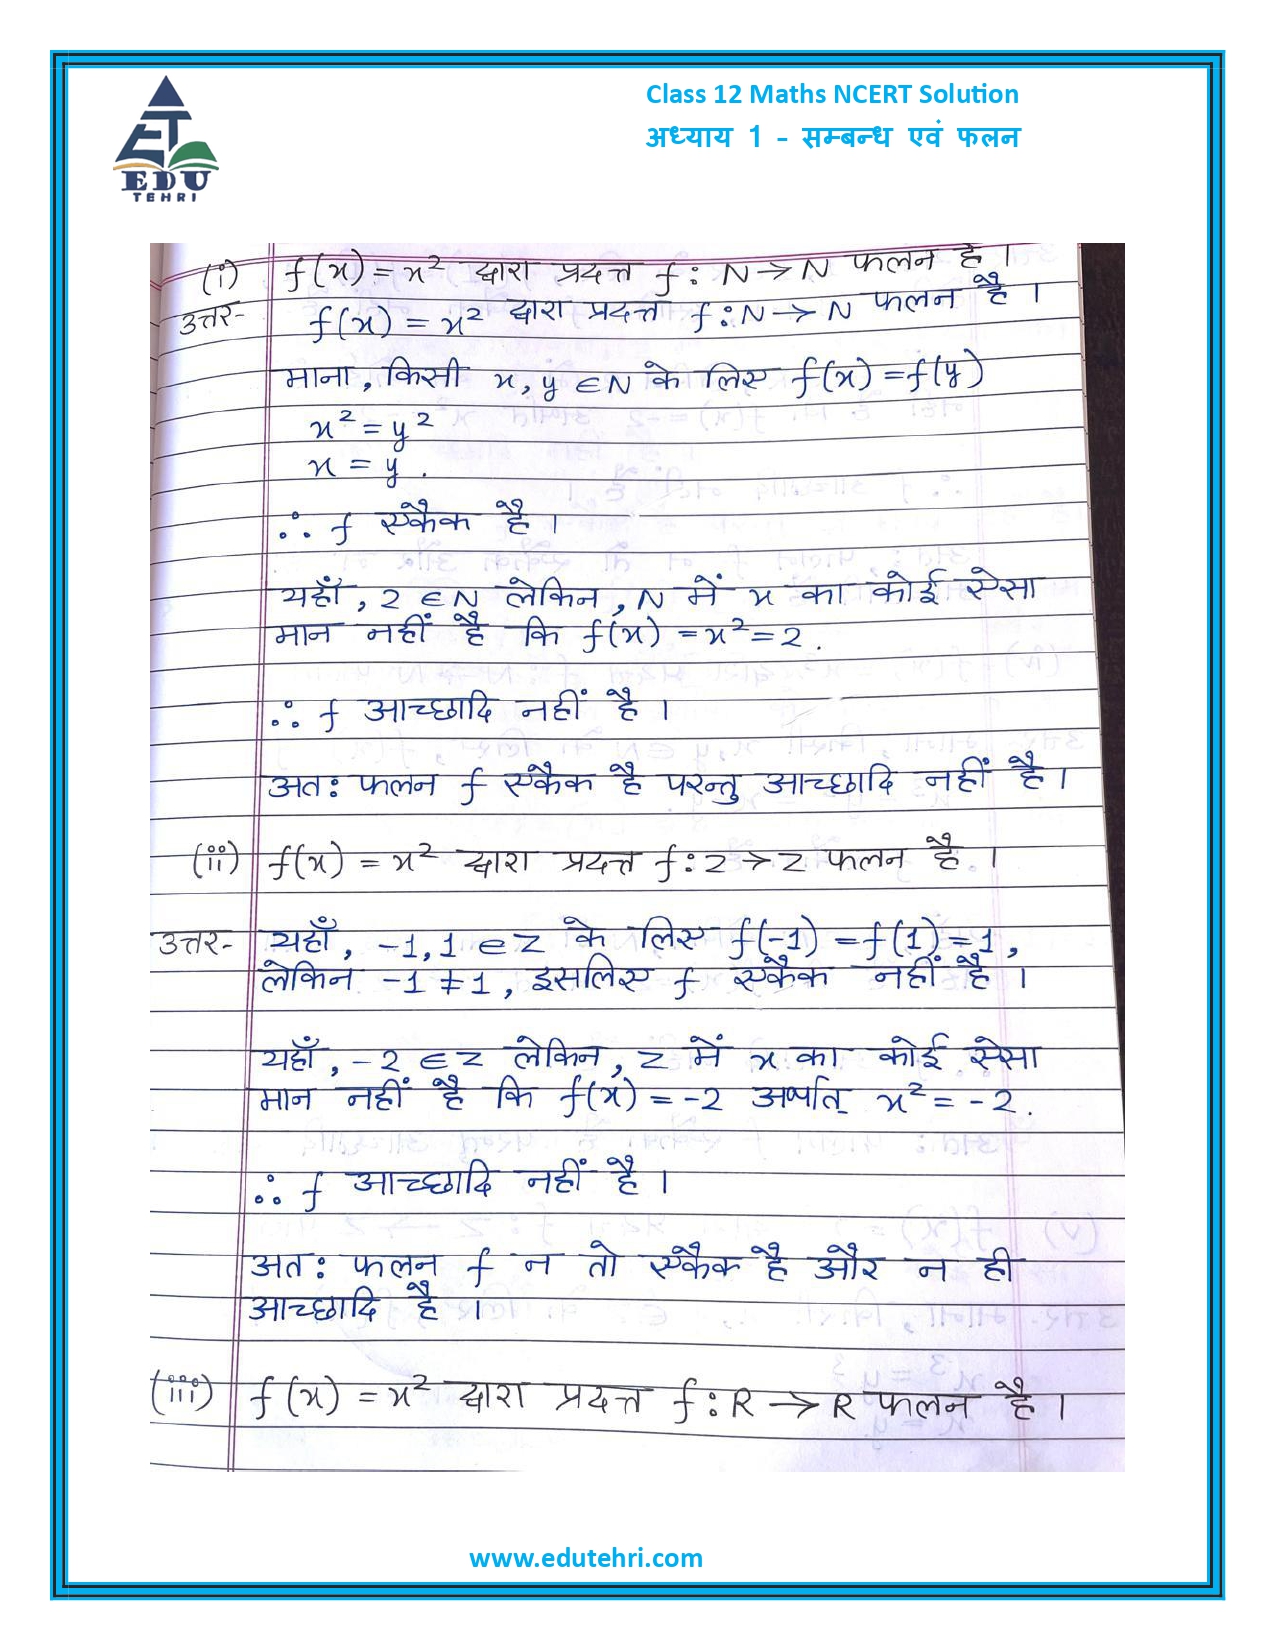 Class 12 Maths NCERT Solution
अध्याय 1 - सम्बन्ध एवं फलन
EDU
TEHRI
(i) f(x) = x² द्वारा प्रदत्त f : N → N फलन है ।
उत्तर- f(x) = x² द्वारा प्रदत्त f : N → N फलन है ।
माना, किसी x, y ∈ N के लिए f(x) = f(y)
x² = y²
x = y .
∴ f एकैक है ।
यहाँ, 2 ∈ N लेकिन, N में x का कोई ऐसा
मान नहीं है कि f(x) = x² = 2 .
∴ f आच्छादि नहीं है ।
अतः फलन f एकैक है परन्तु आच्छादि नहीं है ।
(ii) f(x) = x² द्वारा प्रदत्त f : Z → Z फलन है ।
उत्तर- यहाँ, -1, 1 ∈ Z के लिए f(-1) = f(1) = 1 ,
लेकिन -1 ≠ 1 , इसलिए f एकैक नहीं है ।
यहाँ, -2 ∈ Z लेकिन, Z में x का कोई ऐसा
मान नहीं है कि f(x) = -2 अर्थात् x² = -2 .
∴ f आच्छादि नहीं है ।
अतः फलन f न तो एकैक है और न ही
आच्छादि है ।
(iii) f(x) = x² द्वारा प्रदत्त f : R → R फलन है ।
www.edutehri.com